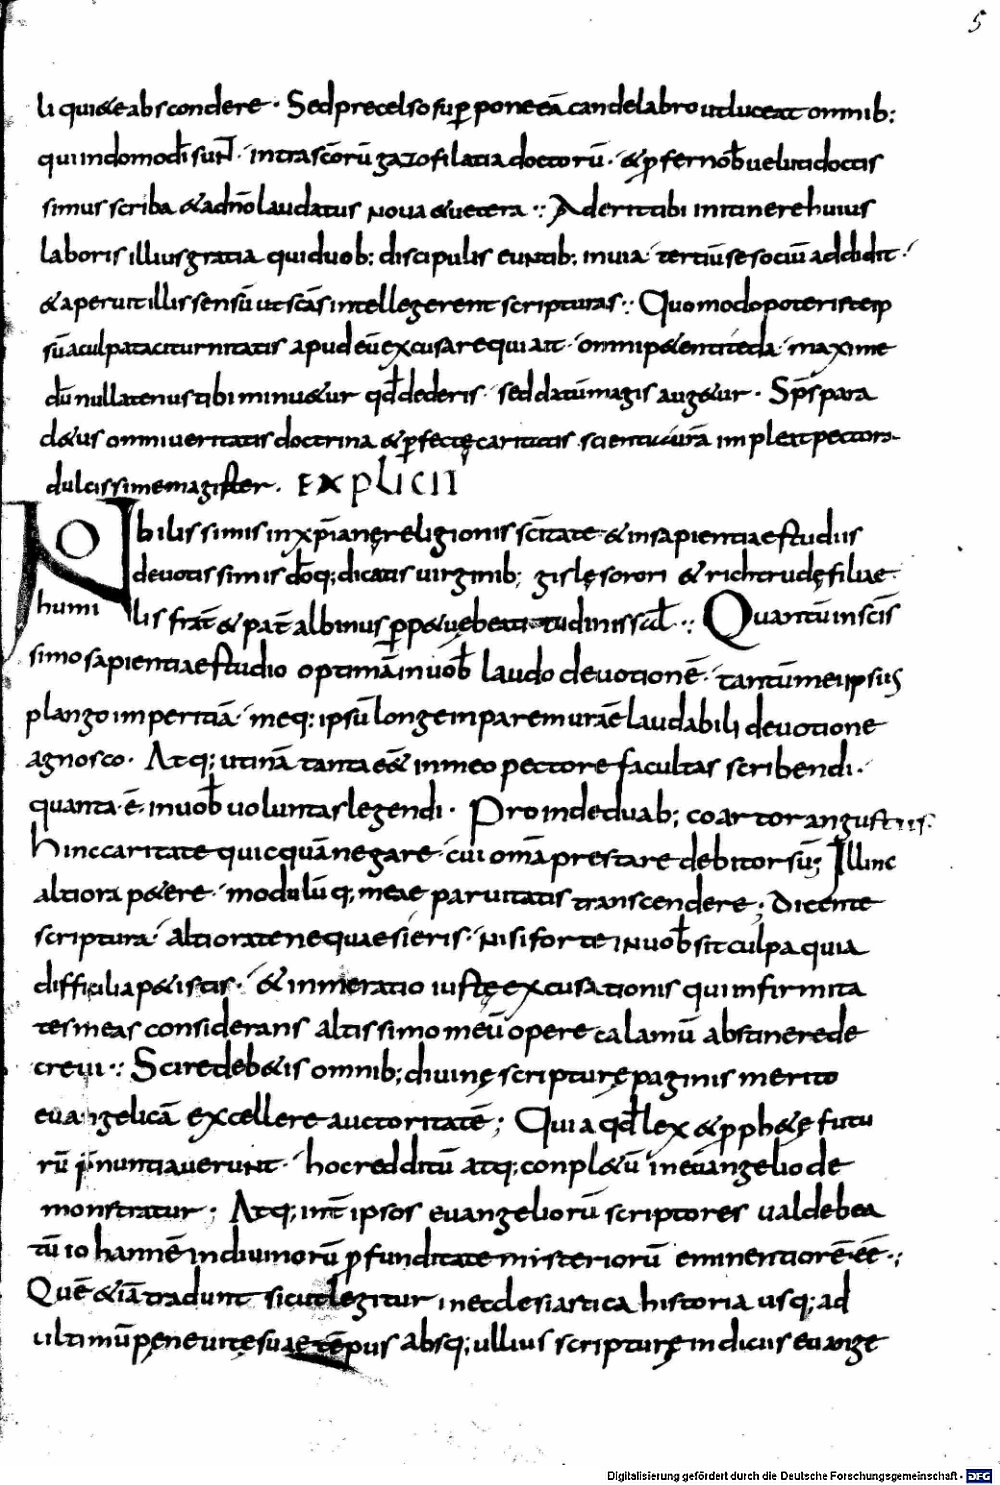 5
li qui&e abscondere · Sed precelso sup̱ pone eā candelabro ut luceat omnib;
qui in domo dī sunt · in tra scōrū gazofilatia doctorū · & p̱fer nob̄ veluti doctis
simus scriba & ad nō laudatus nova & vetera ·: Aderit tibi in itinere huius
laboris illius gratia qui duob; discipulis euntib; in via tertiū se sociū addidit ·
& aperuit illis sensū ut scās intellegerent scripturas ·: Quomodo poteris te ip
sū a culpa taciturnitatis apud eū excusare qui ait · omni p&enti te da · maxime
dū nullatenus tibi minu&ur qd̄ dederis · sed datū magis aug&ur · Sp̄s para
cl&us omni veritatis doctrina & p̱fectę caritatis scientia impleat pectora
dulcissime magister · EXPLICIT
Nobilissimis in xp̄ianę religionis scītate & in sapientiae studiis
devotissimis dōq; dicatis virginib; gislę sorori & richtrudę filiae ·
humilis frāt & pat̄ albinus p̱p&uę beatitudinis sal̄ ·: Quantū in scīs
simo sapientiae studio optimā in vob̄ laudo devotionē · tantū mei ipsius
plango imperitiā · meq; ipsū longe imparem vrāe laudabili devotione
agnosco · Atq; utinā tanta eē& in meo pectore facultas scribendi ·
quanta · ē · in vob̄ voluntas legendi · Proinde duab; coartor angustiis ·
hinc caritate quicquā negare · cui omā prestare debitor sū; Illinc
altiora p&ere · modulūq; meae parvitatis transcendere; Dicente
scriptura · altiora te ne quaesieris · Nisi forte in vob̄ sit culpa quia
difficilia p&istis · & in me ratio iustę excusationis qui infirmita
tes meas considerans altissimo meū opere calamū abstinere de
crevi ·: Scire deb&is omnib; divinę scripturę paginis merito
evangelicā excellere auctoritatē; Quia qd̄ lex & p̱ph&ę futu
rū p̄nuntiaverunt · hoc redditū atq; conpl&ū in evangelio de
monstratur; Atq; int̄ ipsos evangeliorū scriptores valde bea
tū iohannē in divinorū p̱funditate misteriorū eminentiorē eē ·;
Quē &iā tradunt sicut legitur in ecclesiastica historia usq; ad
ultimū pęne vitę suae tēpus absq; ullius scripturę indicus evange
Digitalisierung gefördert durch die Deutsche Forschungsgemeinschaft - DFG